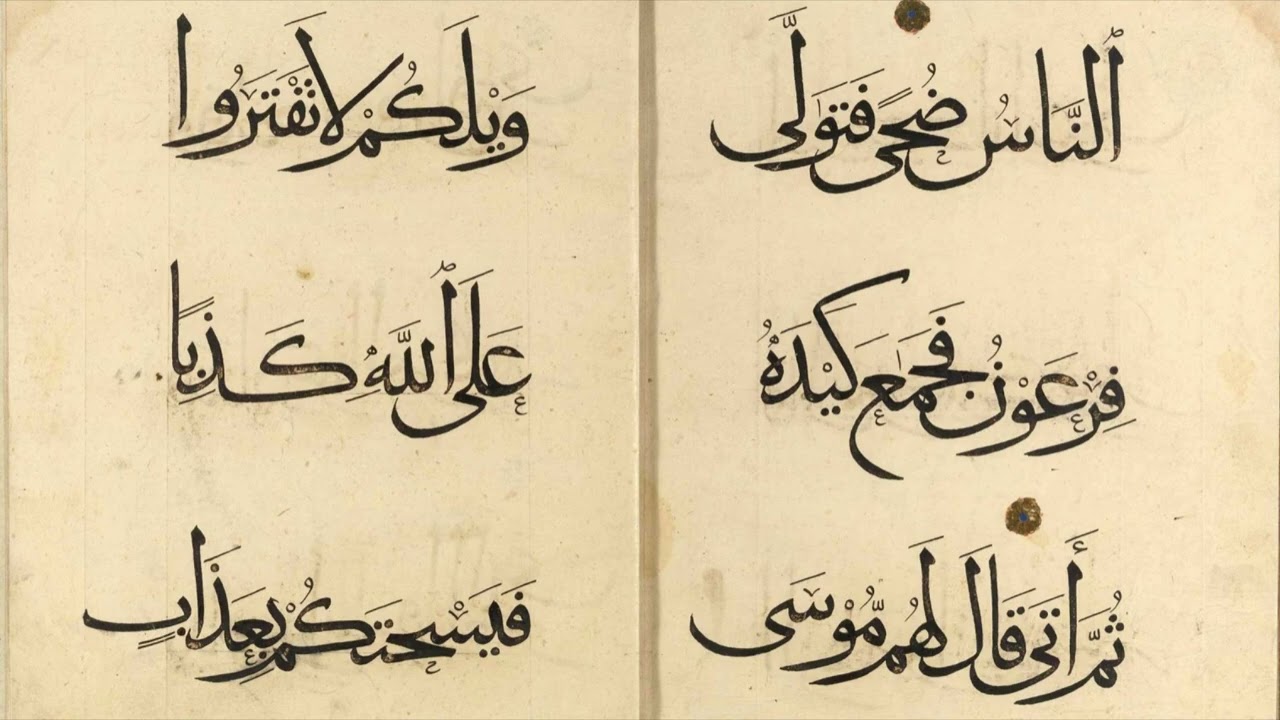 ٱلنَّاسُ ضُحًى فَتَوَلَّى
فِرْعَوْنُ فَجَمَعَ كَيْدَهُ
ثُمَّ أَتَى قَالَ لَهُم مُّوْسَى
وَيْلَكُمْ لَا تَفْتَرُوا
عَلَى ٱللَّهِ كَذِبًا
فَيَسْحَتَكُمْ بِعَذَابٍ